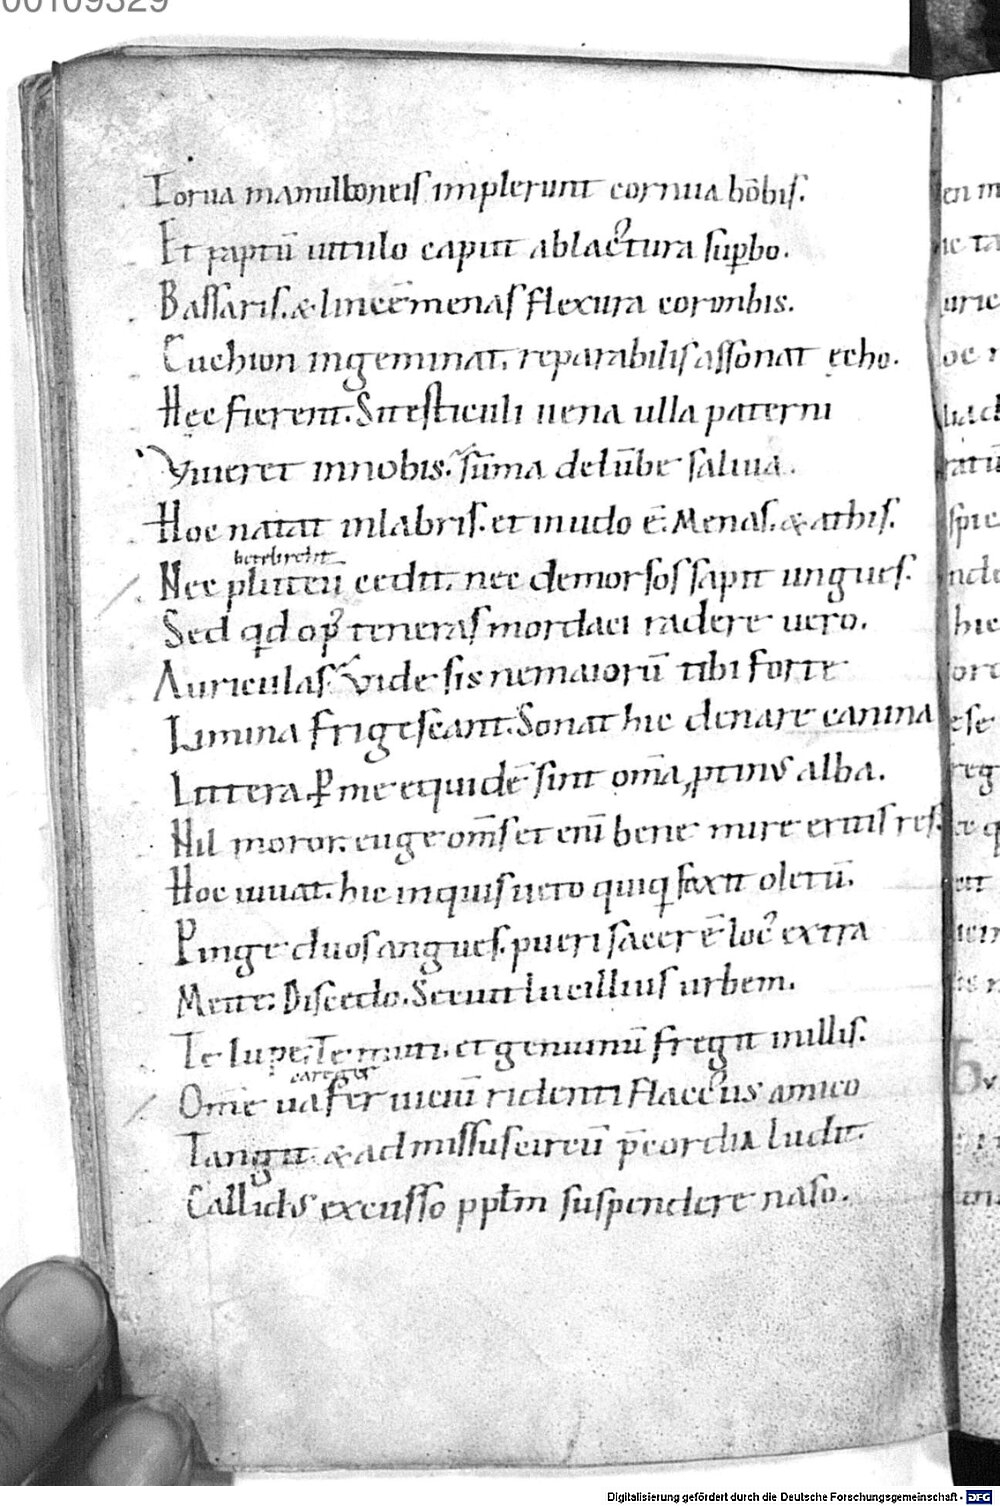 00109329
Torua mamilloneis implerunt cornua bōbis.
Et raptū uitulo caput ablatura suꝑbo.
Bassaris. & lincē menas flexura corimbis.
Euchion ingeminat. reparabilis assonat echo.
Hec fierent. Si testiculi uena ulla paterni
Viueret in nobis. sūma delūbe saliua.
Hoc natat in labris. et in udo ē. Menas. & athis.
Nec pluteū cedit. nec demorsos sapit ungues.
Sed qd op᷒ teneras mordaci radere uero.
Auriculas. Vide sis ne maiorū tibi forte
Limina frigescant. Sonat hic de nare canina
Littera. ꝑ me equidē sint om̄a ꝓtinus alba.
Nil moror. euge om̄s et enī bene mire eritis res.
Hoc iuuat. hic inquis ueto quiqꝫ faxit oletū.
Pinge duos angues. pueri sacer ē loc᷒ extra
Meite. Discedo. Secuit lucillius urbem.
Te lupe. Te muti. et genuinū fregit in illis.
Om̄e uafer uiciū ridenti flaccus amico
Tangit. & admissus circū p̄cordia ludit.
Callidus excusso pptm suspendere naso.
Digitalisierung gefördert durch die Deutsche Forschungsgemeinschaft - DFG